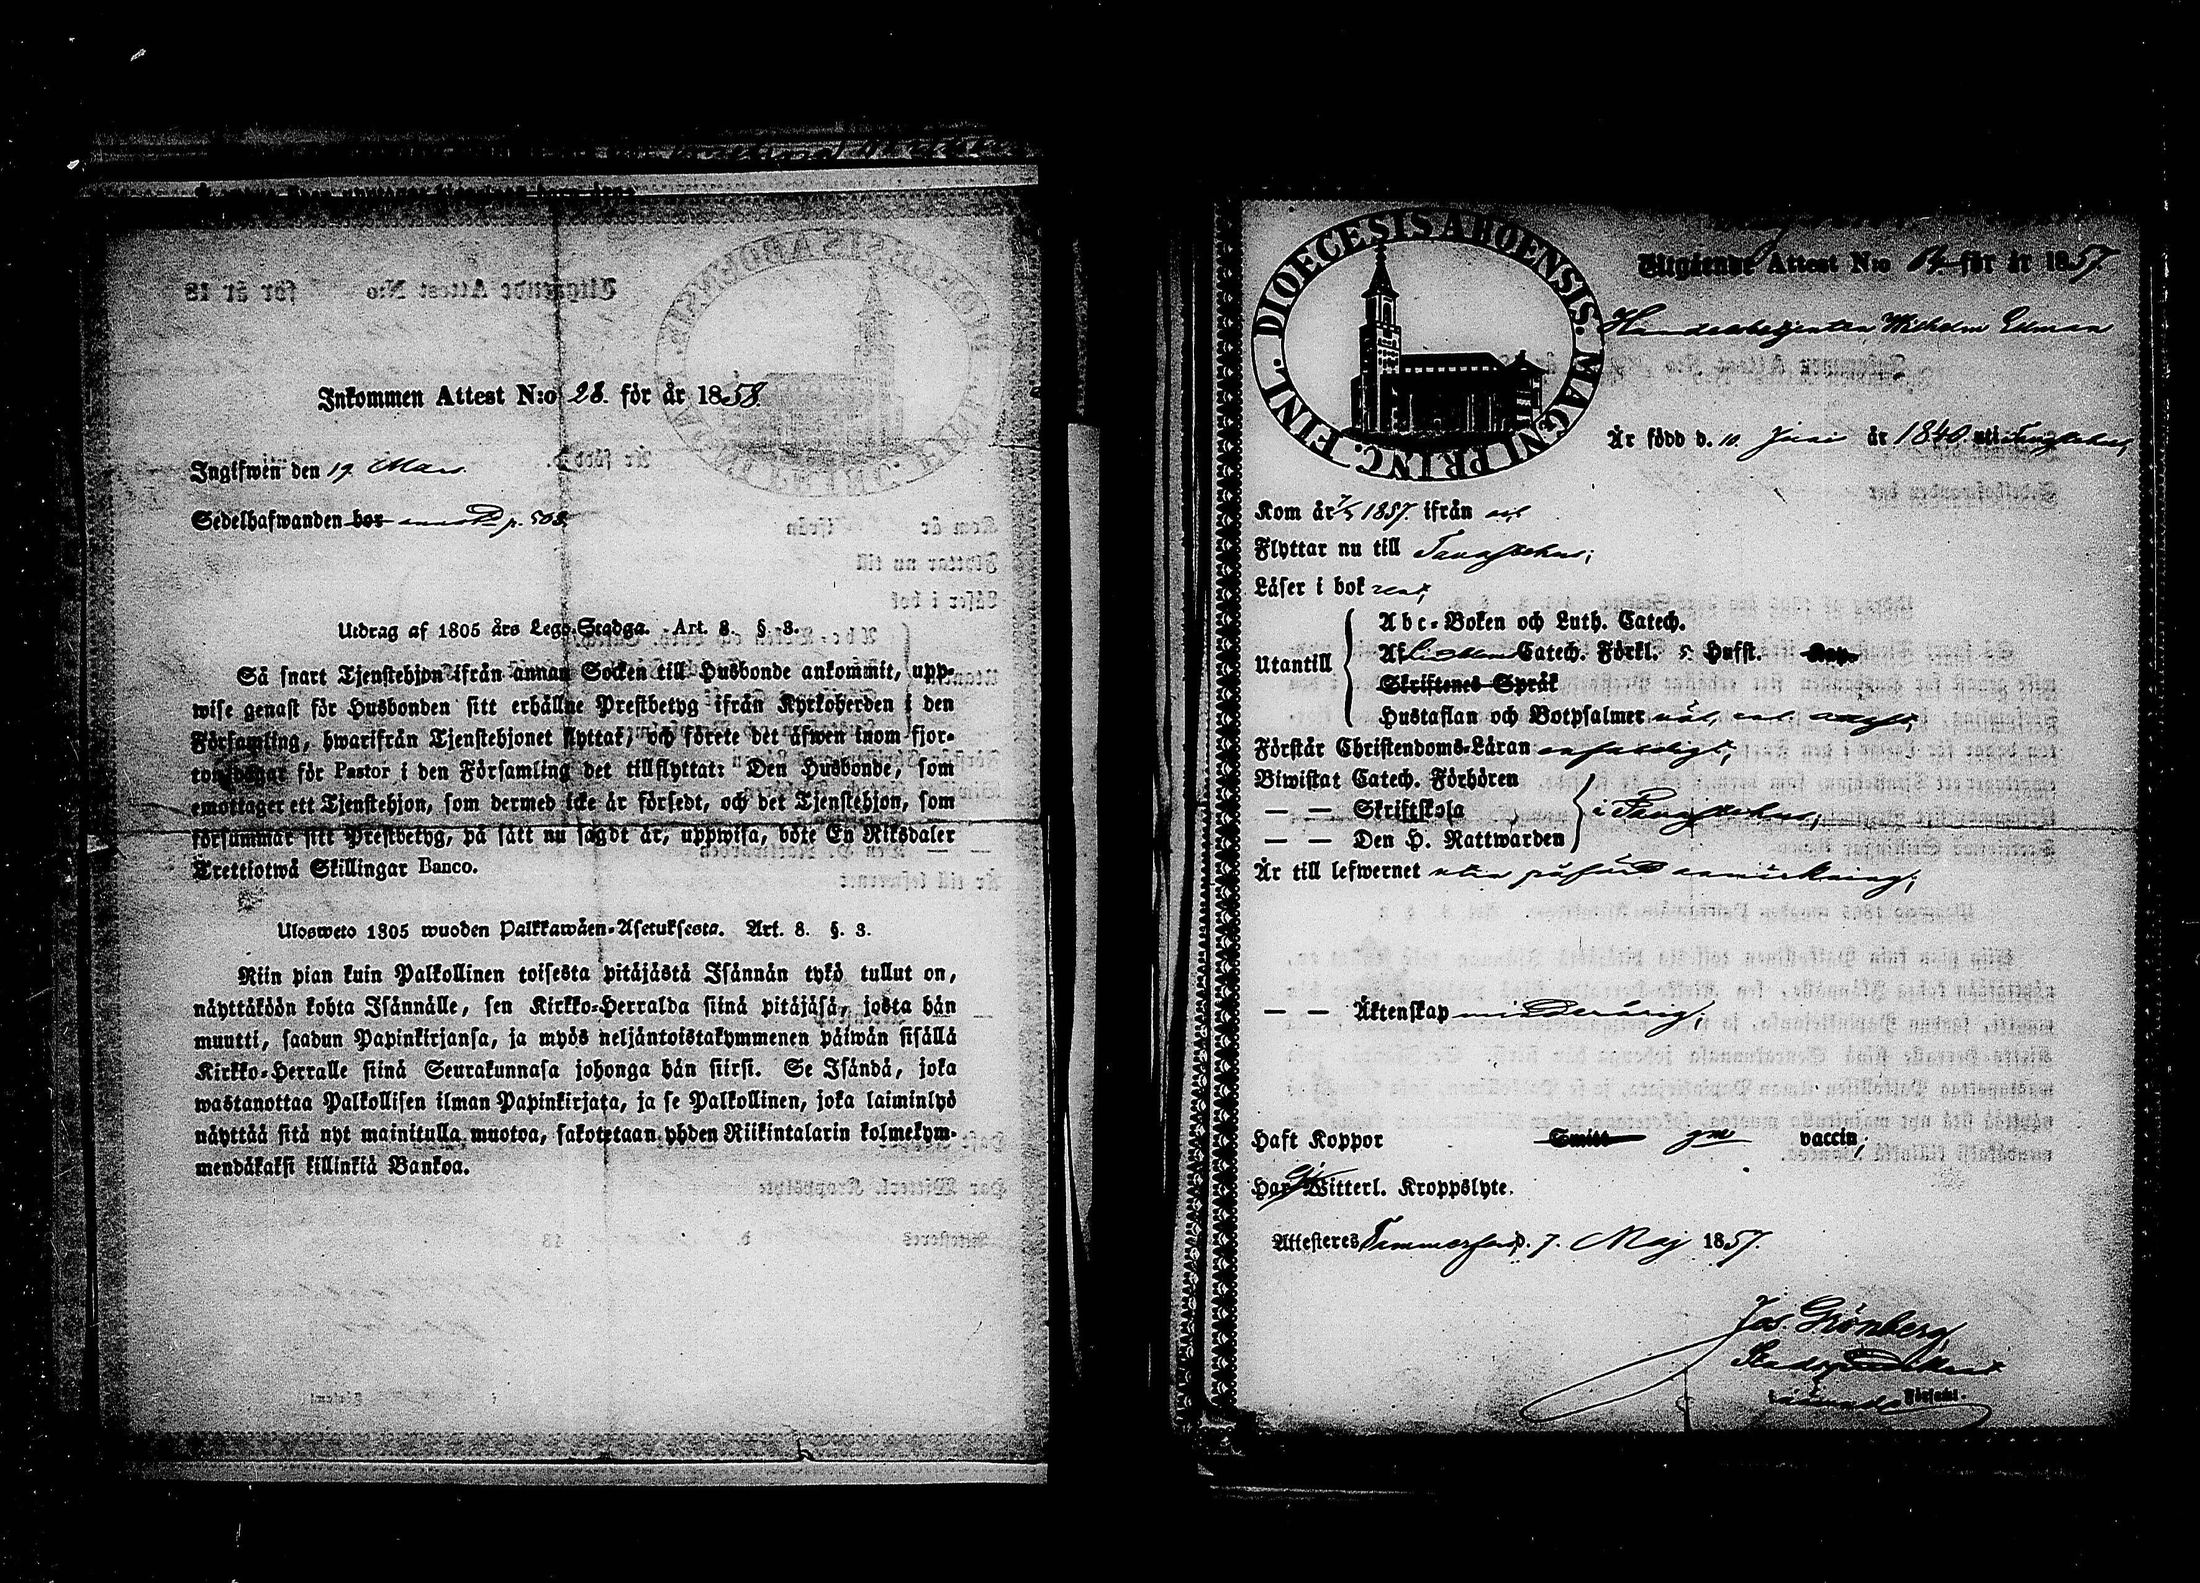 Inkommen Attest N:o 28. för år 1858.
Ingifwen den 19 Mars.
Sedelhafwanden bor p. 503.
Utdrag af 1805 års Lego-Stadga. Art. 8. §. 8.
Så snart Tjenstehjon ifrån annan Socken till Husbonde ankommit, upp-
wise genast för Husbonden sitt erhållne Prestbetyg ifrån Kyrkoherden i den
Församling, hwarifrån Tjenstehjonet flyttat, och förete det äfwen inom fjor-
ton dagar för Pastor i den Församling det tillflyttat: Den Husbonde, som
emottager ett Tjenstehjon, som dermed icke är försedt, och det Tjenstehjon, som
försummar sitt Prestbetyg, på sätt nu sagdt är, uppwisa, böte En Riksdaler
Trettiotwå Skillingar Banco.
Ulosweto 1805 wuoden Palkkawäen-Asetuksesta. Art. 8. §. 8.
Niin pian kuin Palkollinen toisesta pitäjästä Isännän tykö tullut on,
näyttäköön kohta Isännälle, sen Kirkko-Herralda siinä pitäjäsä, josta hän
muutti, saadun Papinkirjansa, ja myös neljäntoistakymmenen päiwän sisällä
Kirkko-Herralle siinä Seurakunnasa johonga hän siirsi. Se Isändä, joka
wastanottaa Palkollisen ilman Papinkirjata, ja se Palkollinen, joka laiminlyö
näyttää sitä nyt mainitulla muotoa, sakotetaan yhden Riikintalarin kolmekym-
mendäkaksi killinkiä Bankoa.
DIOECESIS ABOENSIS. MAGNI PRINC. FINL.
Utgående Attest N:o för år 1857.
Handelsbetjenten Wilhelm Ekman
Är född d. 10 Juni år 1840. uti Tavastehus,
Kom år 7/5 1857. ifrån
Flyttar nu till Tavastehus;
Läser i bok rent,
Utantill
Abc-Boken och Luth. Catech.
Af Catech. Förkl. 5 Hufst.
Skriftenes Språk
Hustaflan och Botpsalmer
Förstår Christendoms-Läran enfaldigt;
Biwistat Catech. Förhören
— — Skriftskola
— — Den H. Nattwarden
i Tavastehus;
Är till lefwernet utan påförd anmärkning;
— — Äktenskap minderårig;
Haft Koppor Smitt gm vaccin;
Har Witterl. Kroppslyte.
Attesteras Tammerfors d. 7. Maj 1857.
Jos. Grönberg
Stadspredikant